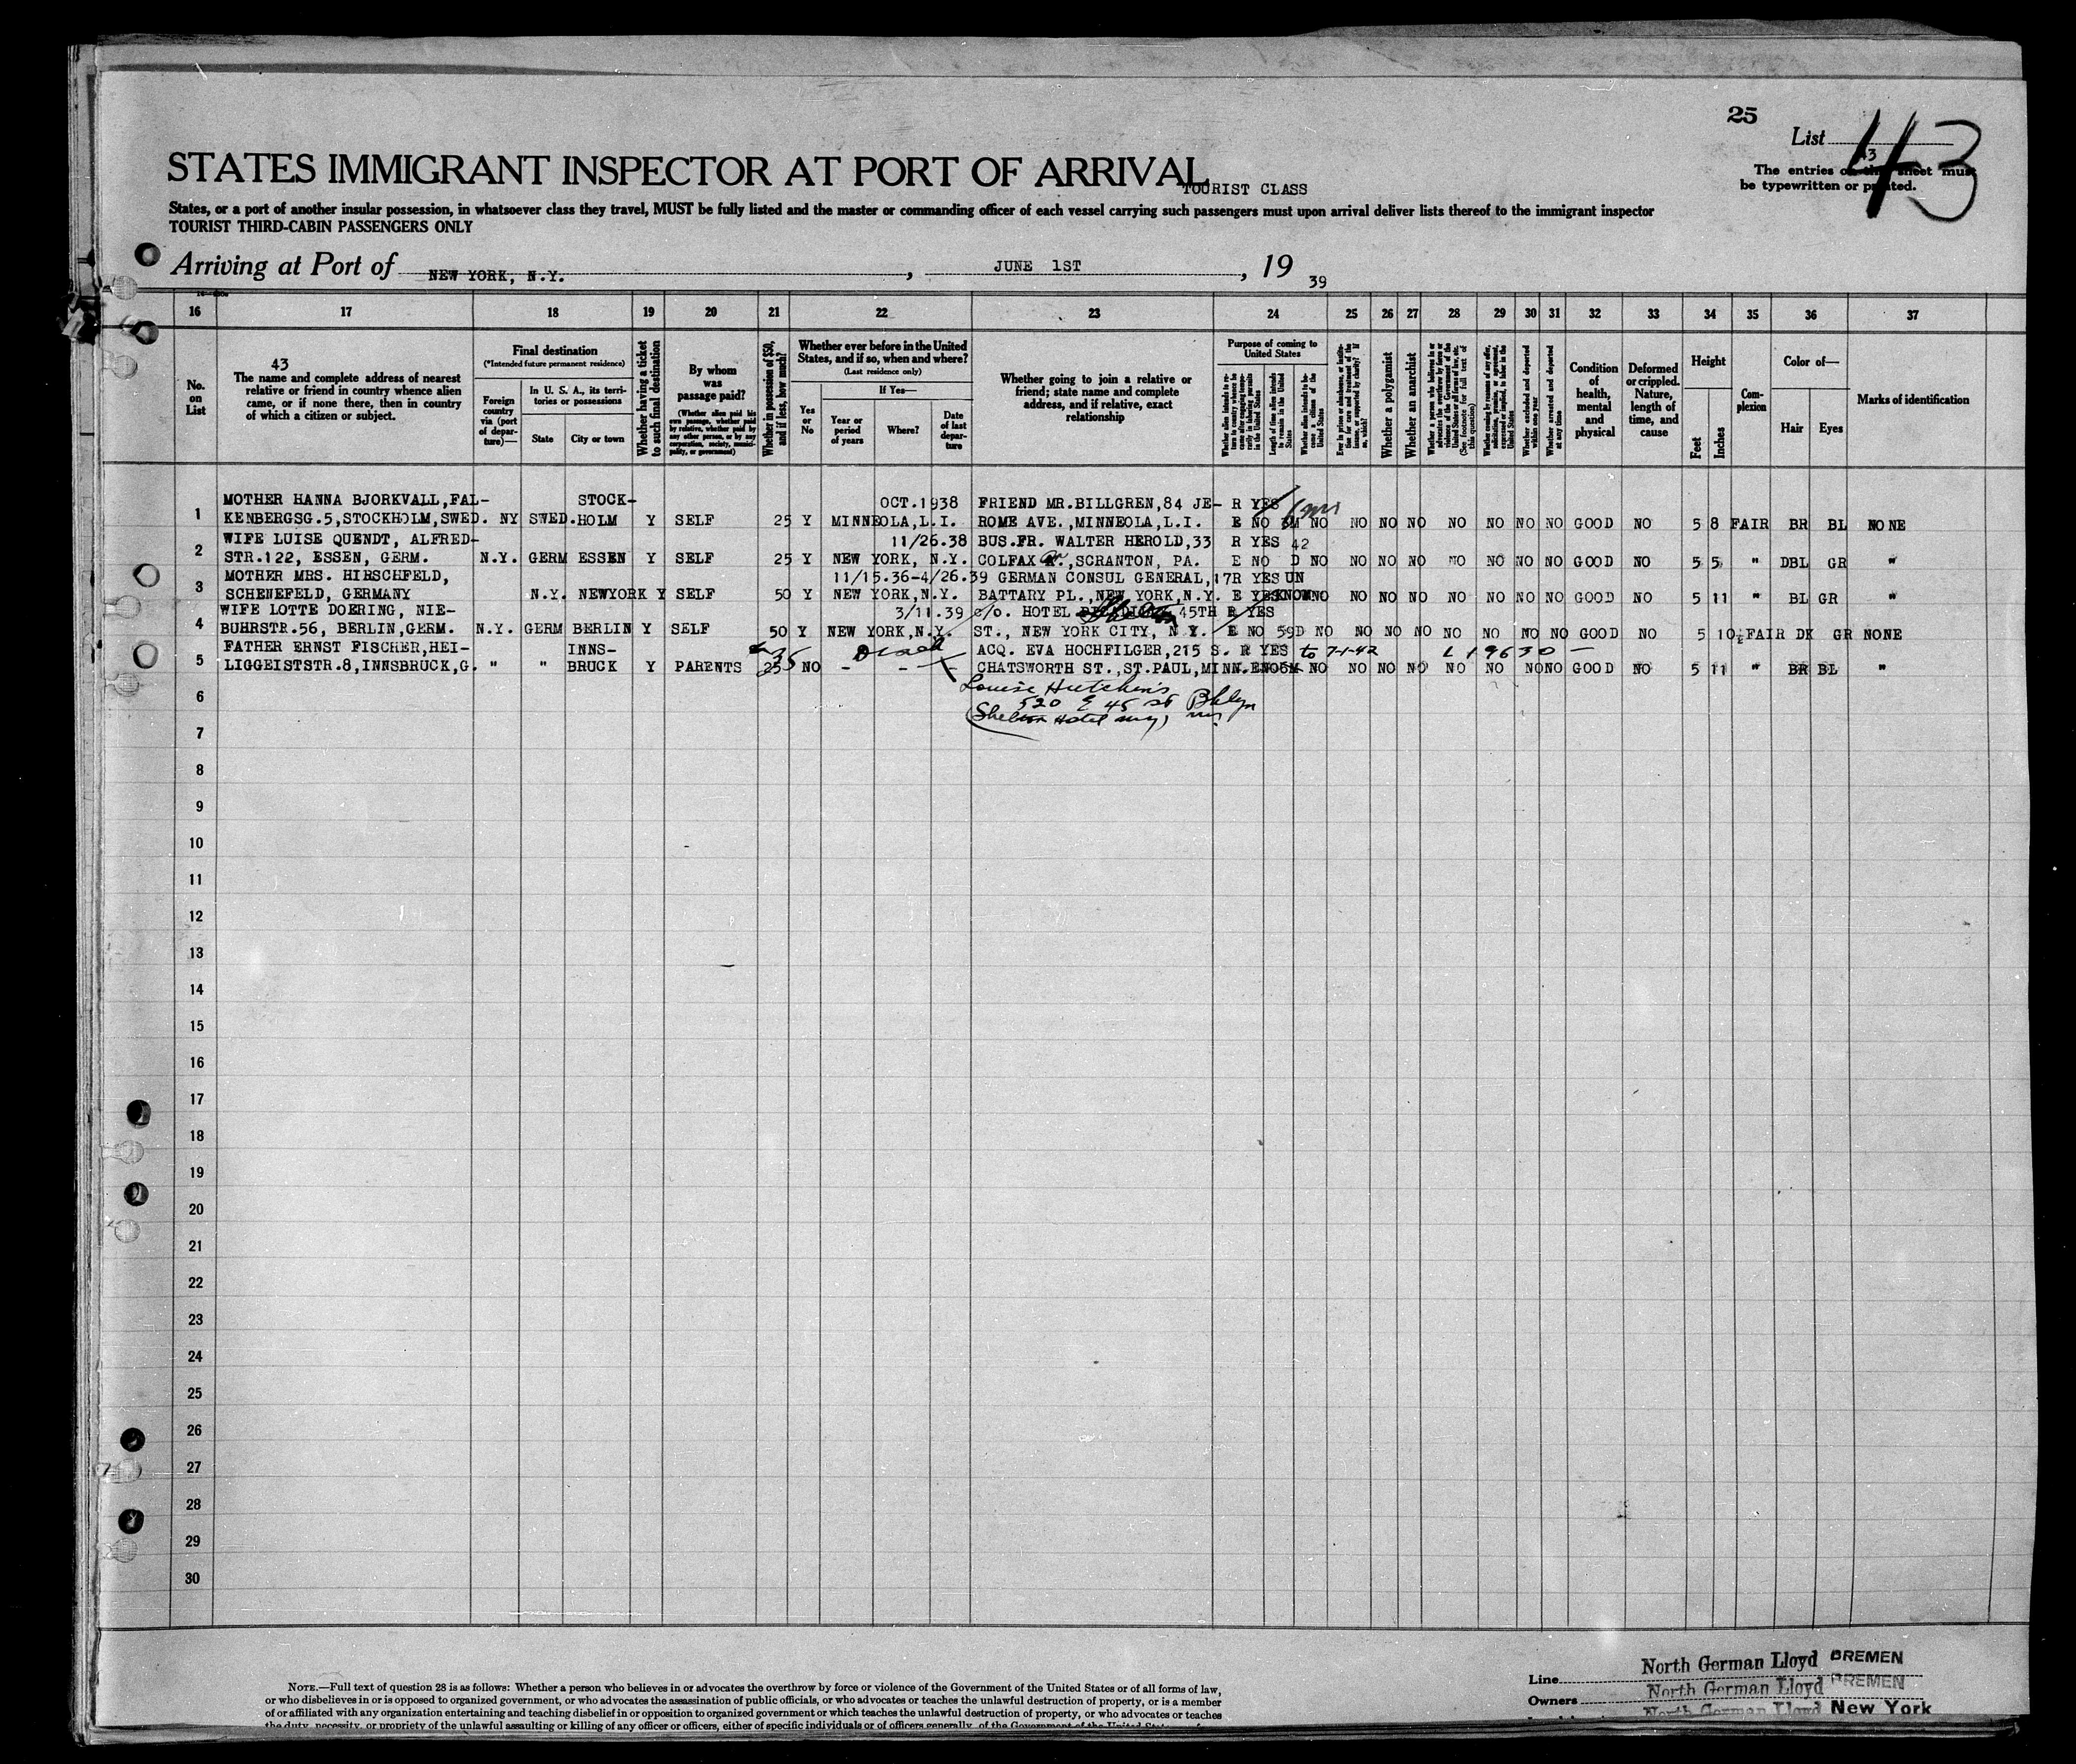 25
List 43
43
The entries on this sheet must
be typewritten or printed.
STATES IMMIGRANT INSPECTOR AT PORT OF ARRIVAL
TOURIST CLASS
States, or a port of another insular possession, in whatsoever class they travel, MUST be fully listed and the master or commanding officer of each vessel carrying such passengers must upon arrival deliver lists thereof to the immigrant inspector
TOURIST THIRD-CABIN PASSENGERS ONLY
Arriving at Port of NEW YORK, N.Y. , JUNE 1ST , 19 39
16 17 18 19 20 21 22 23 24 25 26 27 28 29 30 31 32 33 34 35 36 37
No. on List
43
The name and complete address of nearest relative or friend in country whence alien came, or if none there, then in country of which a citizen or subject.
Final destination
(*Intended future permanent residence)
Foreign country via (port of departure)—
In U. S. A., its territories or possessions
State
City or town
Whether having a ticket to such final destination
By whom was passage paid?
(Whether alien paid his own passage, whether paid by relative, whether paid by any other person, or by any corporation, society, municipality, or government)
Whether in possession of $50, and if less, how much?
Whether ever before in the United States, and if so, when and where?
(Last residence only)
Yes or No
If Yes—
Year or period of years
Where?
Date of last departure
Whether going to join a relative or friend; state name and complete address, and if relative, exact relationship
Purpose of coming to United States
Length of time alien intends to remain in the United States
Whether alien intends to become a citizen of the United States
Whether a polygamist
Whether an anarchist
(See footnote for full text of this question)
Whether excluded and deported within one year
Whether arrested and deported at any time
Condition of health, mental and physical
Deformed or crippled. Nature, length of time, and cause
Height
Feet
Inches
Complexion
Color of—
Hair
Eyes
Marks of identification
MOTHER HANNA BJORKVALL,FAL- STOCK- OCT.1938 FRIEND MR.BILLGREN,84 JE- R YES
1 KENBERGSG.5,STOCKHOLM,SWED. NY SWED.HOLM Y SELF 25 Y MINNEOLA,L.I. ROME AVE.,MINNEOLA,L.I. E NO 6M NO NO NO NO NO NO NO NO GOOD NO 5 8 FAIR BR BL NONE
WIFE LUISE QUENDT, ALFRED- 11/26.38 BUS.FR. WALTER HEROLD,33 R YES 42
2 STR.122, ESSEN, GERM. N.Y. GERM ESSEN Y SELF 25 Y NEW YORK, N.Y. COLFAX ,SCRANTON, PA. E NO D NO NO NO NO NO NO NO NO GOOD NO 5 5 " DBL GR "
MOTHER MRS. HIRSCHFELD, 11/15.36-4/26.39 GERMAN CONSUL GENERAL,17 R YES UN
3 SCHENEFELD, GERMANY N.Y. NEWYORK Y SELF 50 Y NEW YORK,N.Y. BATTARY PL.,NEW YORK,N.Y. E YES KNOWN NO NO NO NO NO NO NO NO GOOD NO 5 11 " BL GR "
WIFE LOTTE DOERING, NIE- 3/11.39 c/o. HOTEL Shelton 45TH R YES
4 BUHRSTR.56, BERLIN,GERM. N.Y. GERM BERLIN Y SELF 50 Y NEW YORK,N.Y. ST., NEW YORK CITY, N.Y. E NO 59D NO NO NO NO NO NO NO NO GOOD NO 5 10½ FAIR DK GR NONE
FATHER ERNST FISCHER,HEI- INNS- ACQ. EVA HOCHFILGER,215 S. R YES to 7-1-42 L 19630 —
5 LIGGEISTSTR.8,INNSBRUCK,G. " " BRUCK Y PARENTS 25 35 NO - - - CHATSWORTH ST.,ST.PAUL,MINN. E NO 5M NO NO NO NO NO NO NO NO GOOD NO 5 11 " BR BL "
Louise Hutchins
520 E 45 St Bklyn
(Shelton Hotel NYC, NY
6
7
8
9
10
11
12
13
14
15
16
17
18
19
20
21
22
23
24
25
26
27
28
29
30
NOTE.—Full text of question 28 is as follows: Whether a person who believes in or advocates the overthrow by force or violence of the Government of the United States or of all forms of law,
or who disbelieves in or is opposed to organized government, or who advocates the assassination of public officials, or who advocates or teaches the unlawful destruction of property, or is a member
of or affiliated with any organization entertaining and teaching disbelief in or opposition to organized government or which teaches the unlawful destruction of property, or who advocates or teaches
the duty, necessity, or propriety of the unlawful assaulting or killing of any officer or officers, either of specific individuals or of officers generally, of the Government of the United States
Line North German Lloyd BREMEN
Owners North German Lloyd BREMEN
North German Lloyd New York